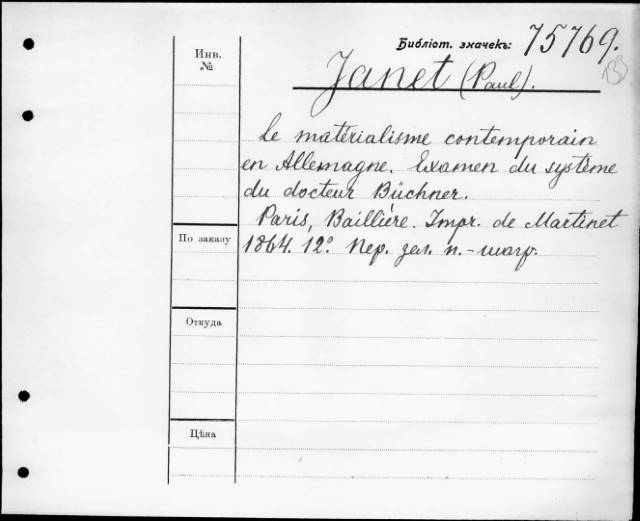 Библіот. значекъ: 75769.
133
Инв.
№
Janet (Paul).
Le matérialisme contemporain
en Allemagne. Examen du système
du docteur Büchner.
Paris, Baillière. Impr. de Martinet
1864. 12º. Пер. зел. п.-шагр.
По заказу
Откуда
Цѣна